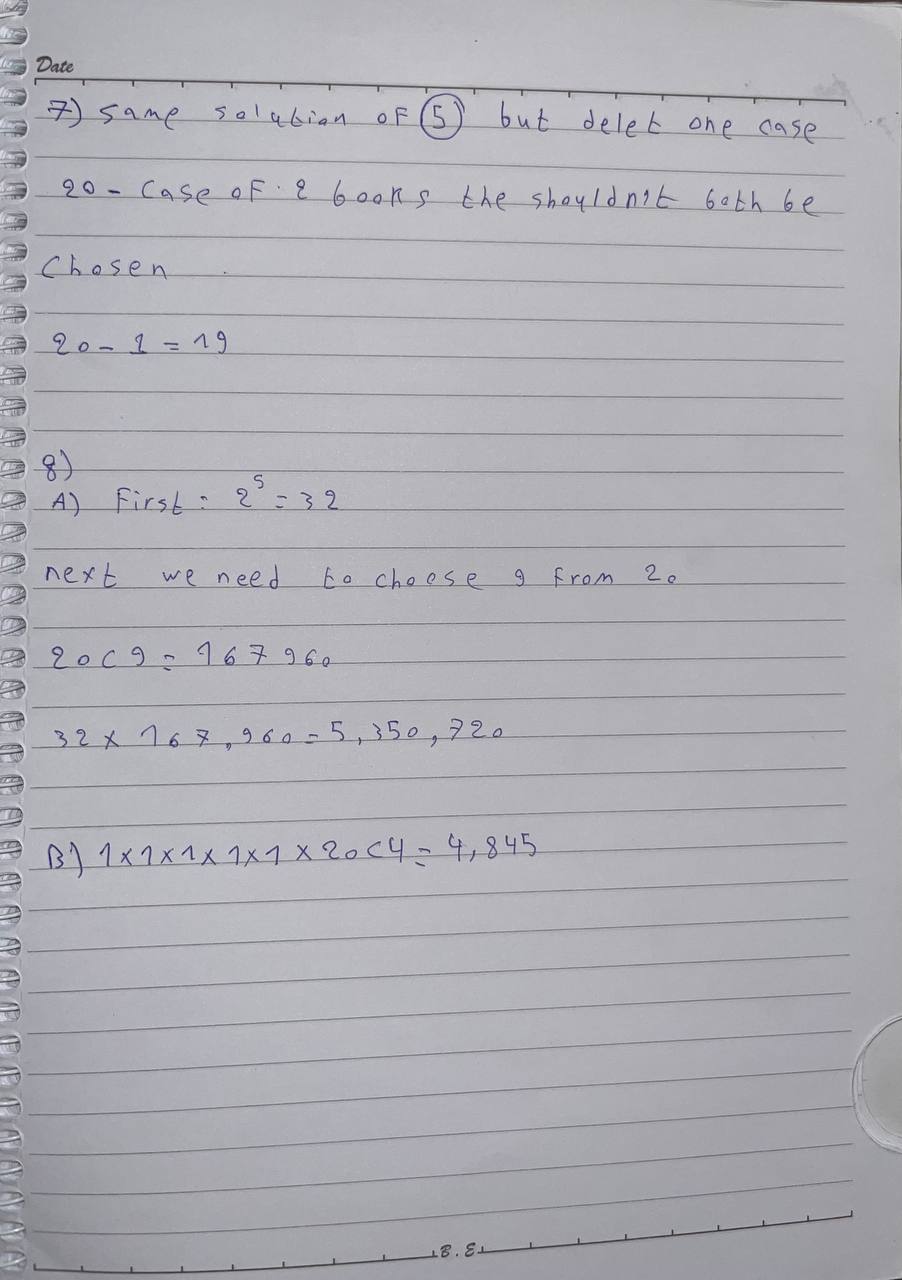 Date
7) same solution of 5 but delet one case
20 - case of 2 books the shouldn't both be
chosen
20 - 1 = 19
8)
A) First : 2^5 = 32
next we need to choose 9 from 20
20C9 = 167960
32 x 167,960 = 5,350,720
B) 1x1x1x1x1 x 20C4 = 4,845
B.E